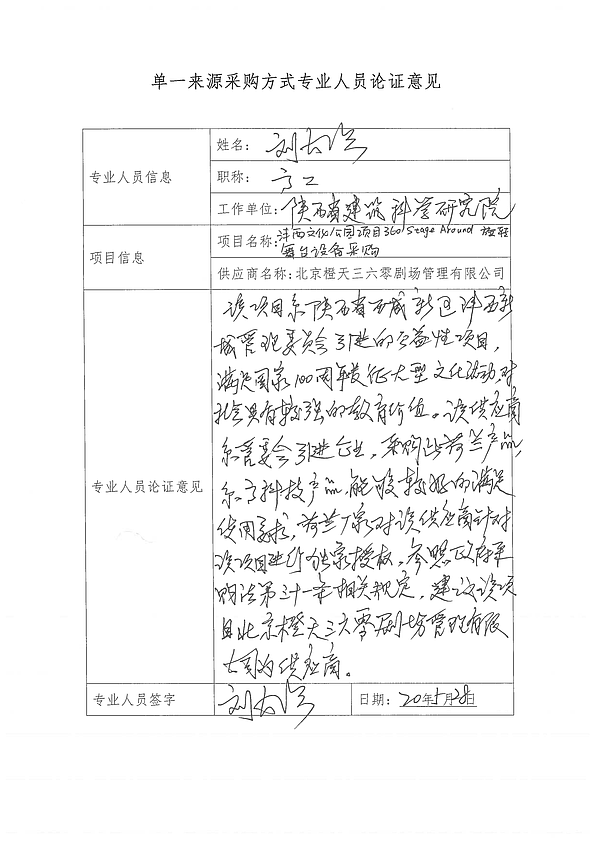 单一来源采购方式专业人员论证意见
专业人员信息
姓名：刘
职称：高工
工作单位：陕西省建筑科学研究院
项目信息
项目名称：沣西文化公园项目360 Stage Around 旋转
舞台设备采购
供应商名称：北京橙天三六零剧场管理有限公司
专业人员论证意见
该项目系陕西省西咸新区沣西新
城管理委员会引进的公益性项目，
满足国家100周年长征大型文化活动，对
社会具有较强的教育价值。该供应商
系管委会引进企业，采购此荷兰产品，
系高科技产品，能够较好的满足
使用要求，荷兰厂家对该供应商针对
该项目进行独家授权，参照政府采
购法第三十一条相关规定，建议该项
目北京橙天三六零剧场管理有限
公司为供应商。
专业人员签字
刘
日期：20年5月28日